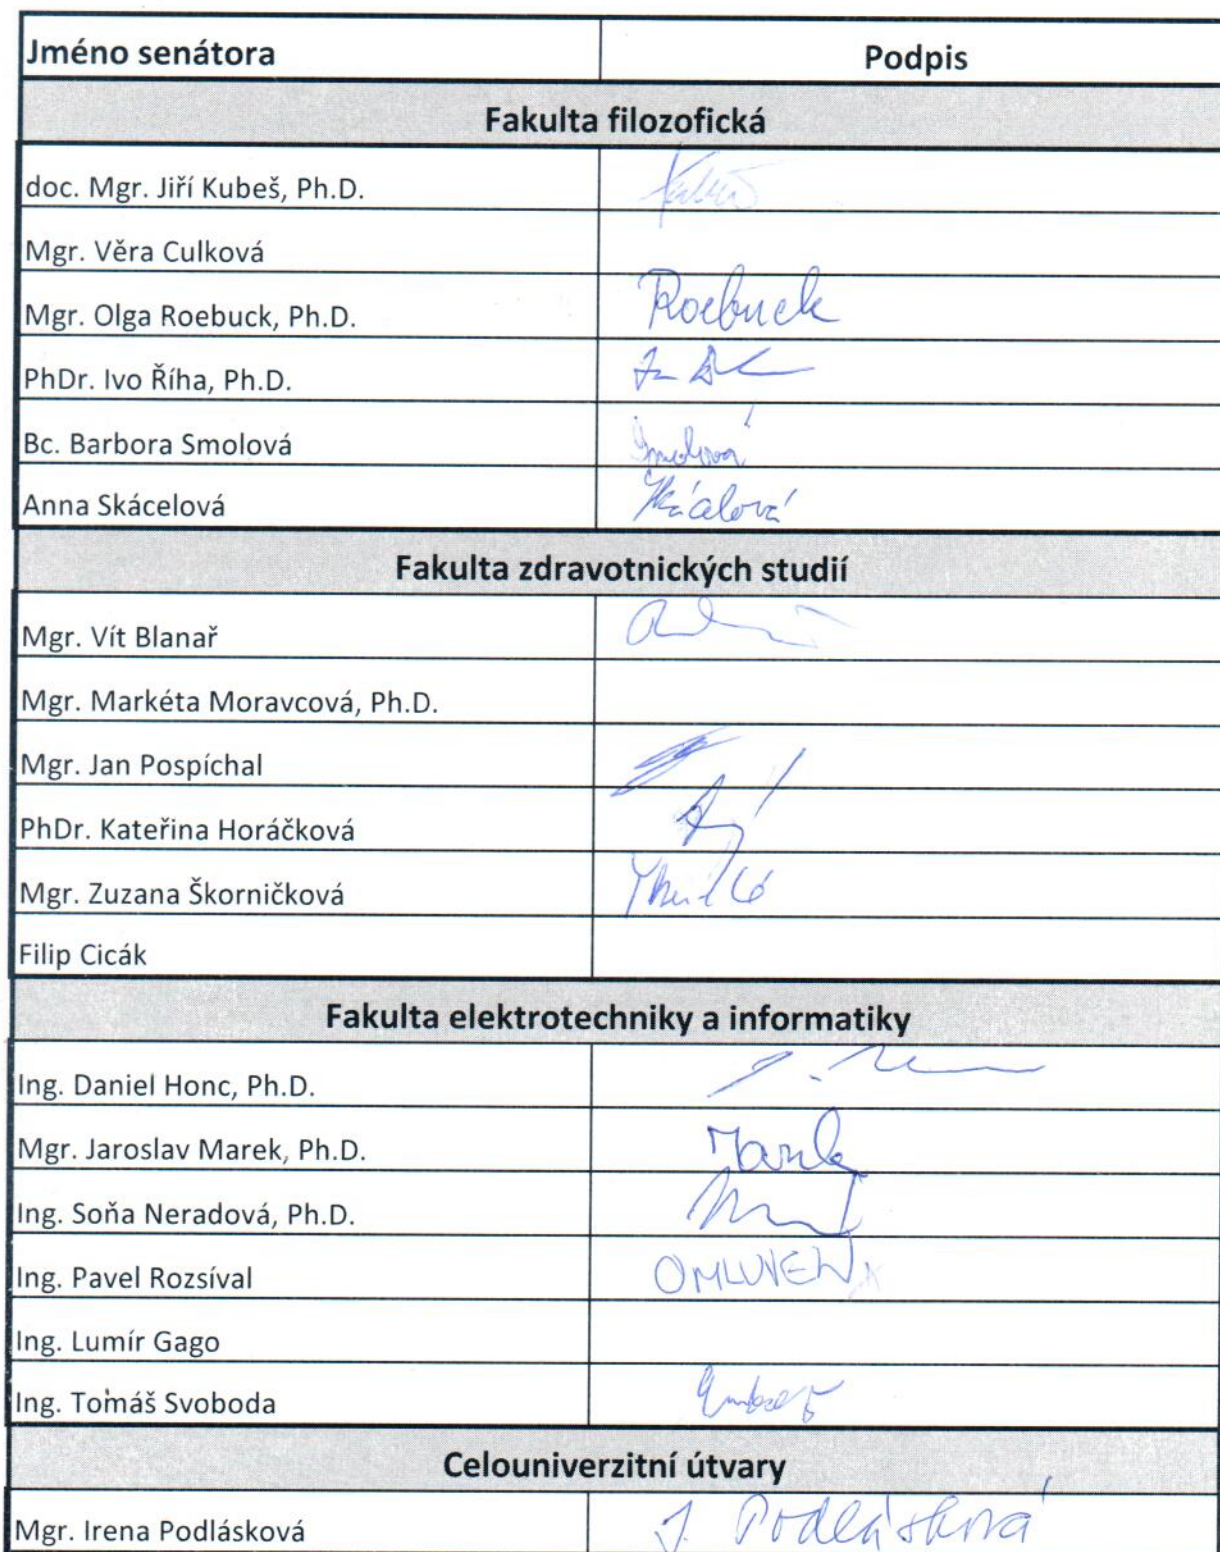 Jméno senátora Podpis
Fakulta filozofická
doc. Mgr. Jiří Kubeš, Ph.D. Kubeš
Mgr. Věra Culková
Mgr. Olga Roebuck, Ph.D. Roebuck
PhDr. Ivo Říha, Ph.D.
Bc. Barbora Smolová Smolová
Anna Skácelová Skácelová
Fakulta zdravotnických studií
Mgr. Vít Blanař
Mgr. Markéta Moravcová, Ph.D.
Mgr. Jan Pospíchal
PhDr. Kateřina Horáčková
Mgr. Zuzana Škorničková
Filip Cicák
Fakulta elektrotechniky a informatiky
Ing. Daniel Honc, Ph.D.
Mgr. Jaroslav Marek, Ph.D. Marek
Ing. Soňa Neradová, Ph.D.
Ing. Pavel Rozsíval OMLUVEN
Ing. Lumír Gago
Ing. Tomáš Svoboda
Celouniverzitní útvary
Mgr. Irena Podlásková I. Podlásková